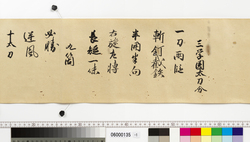 三学圓太刀分
一刀両段
斬釘截鉄
半開半向
右旋左轉
長短一味
九箇
必勝
逆風
十太刀
06000135